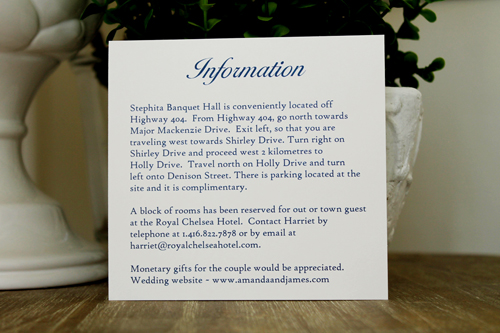 Information
Stephita Banquet Hall is conveniently located off
Highway 404. From Highway 404, go north towards
Major Mackenzie Drive. Exit left, so that you are
traveling west towards Shirley Drive. Turn right on
Shirley Drive and proceed west 2 kilometres to
Holly Drive. Travel north on Holly Drive and turn
left onto Denison Street. There is parking located at the
site and it is complimentary.
A block of rooms has been reserved for out or town guest
at the Royal Chelsea Hotel. Contact Harriet by
telephone at 1.416.822.7878 or by email at
harriet@royalchelsahotel.com.
Monetary gifts for the couple would be appreciated.
Wedding website - www.amandaandjames.com